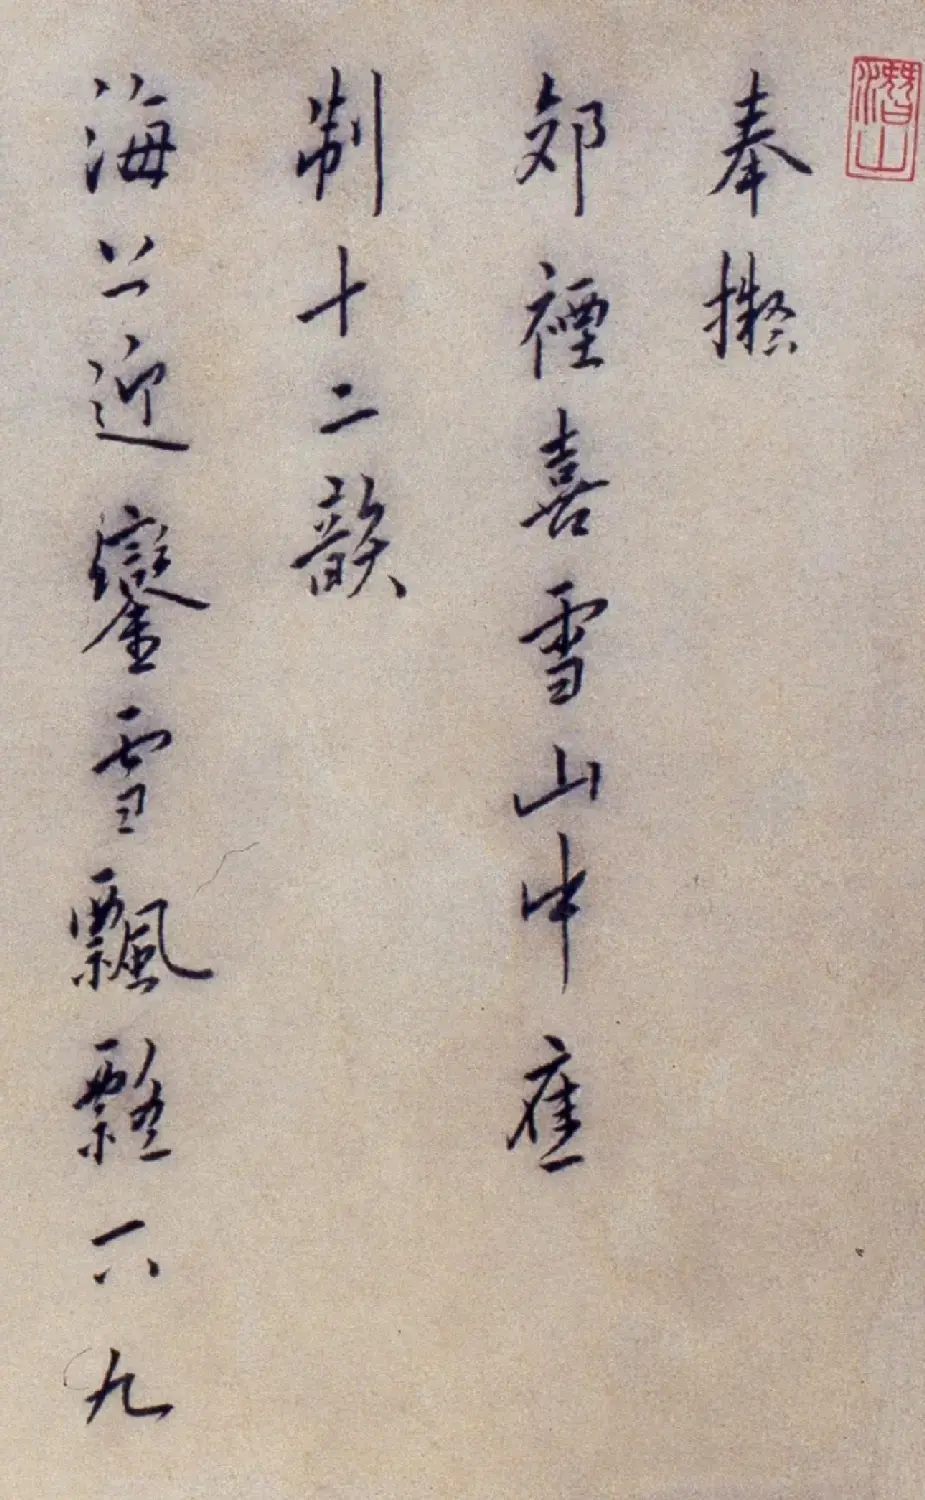 潛山
奉擬
郊禋喜雪山中應
制十二韻
海上迎鑾雪飄飄下九